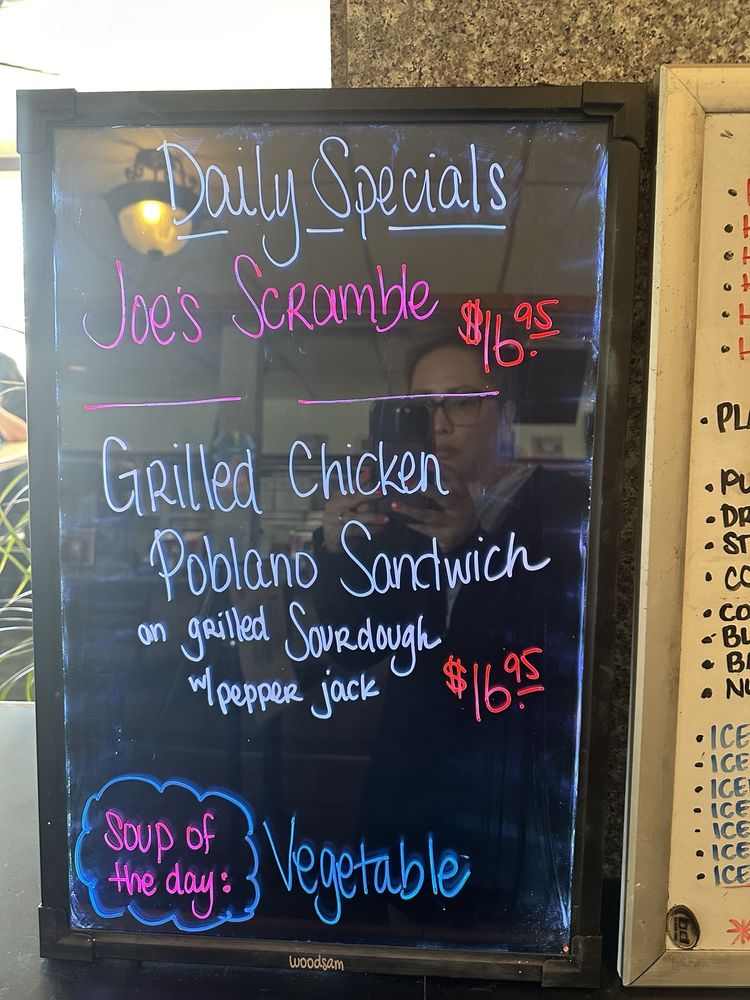 Daily Specials
Joe's Scramble $16.95
Grilled Chicken
Poblano Sandwich
on grilled Sourdough
w/ pepper jack $16.95
Soup of
the day: Vegetable
woodsam
PLA
DR
ST
CO
CO
BL
BA
ICE
ICE
ICE
ICE
ICE
ICE
ICE